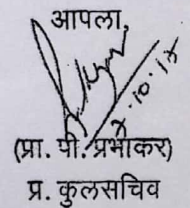 आपला,
(प्रा. पी. प्रभाकर)
प्र. कुलसचिव